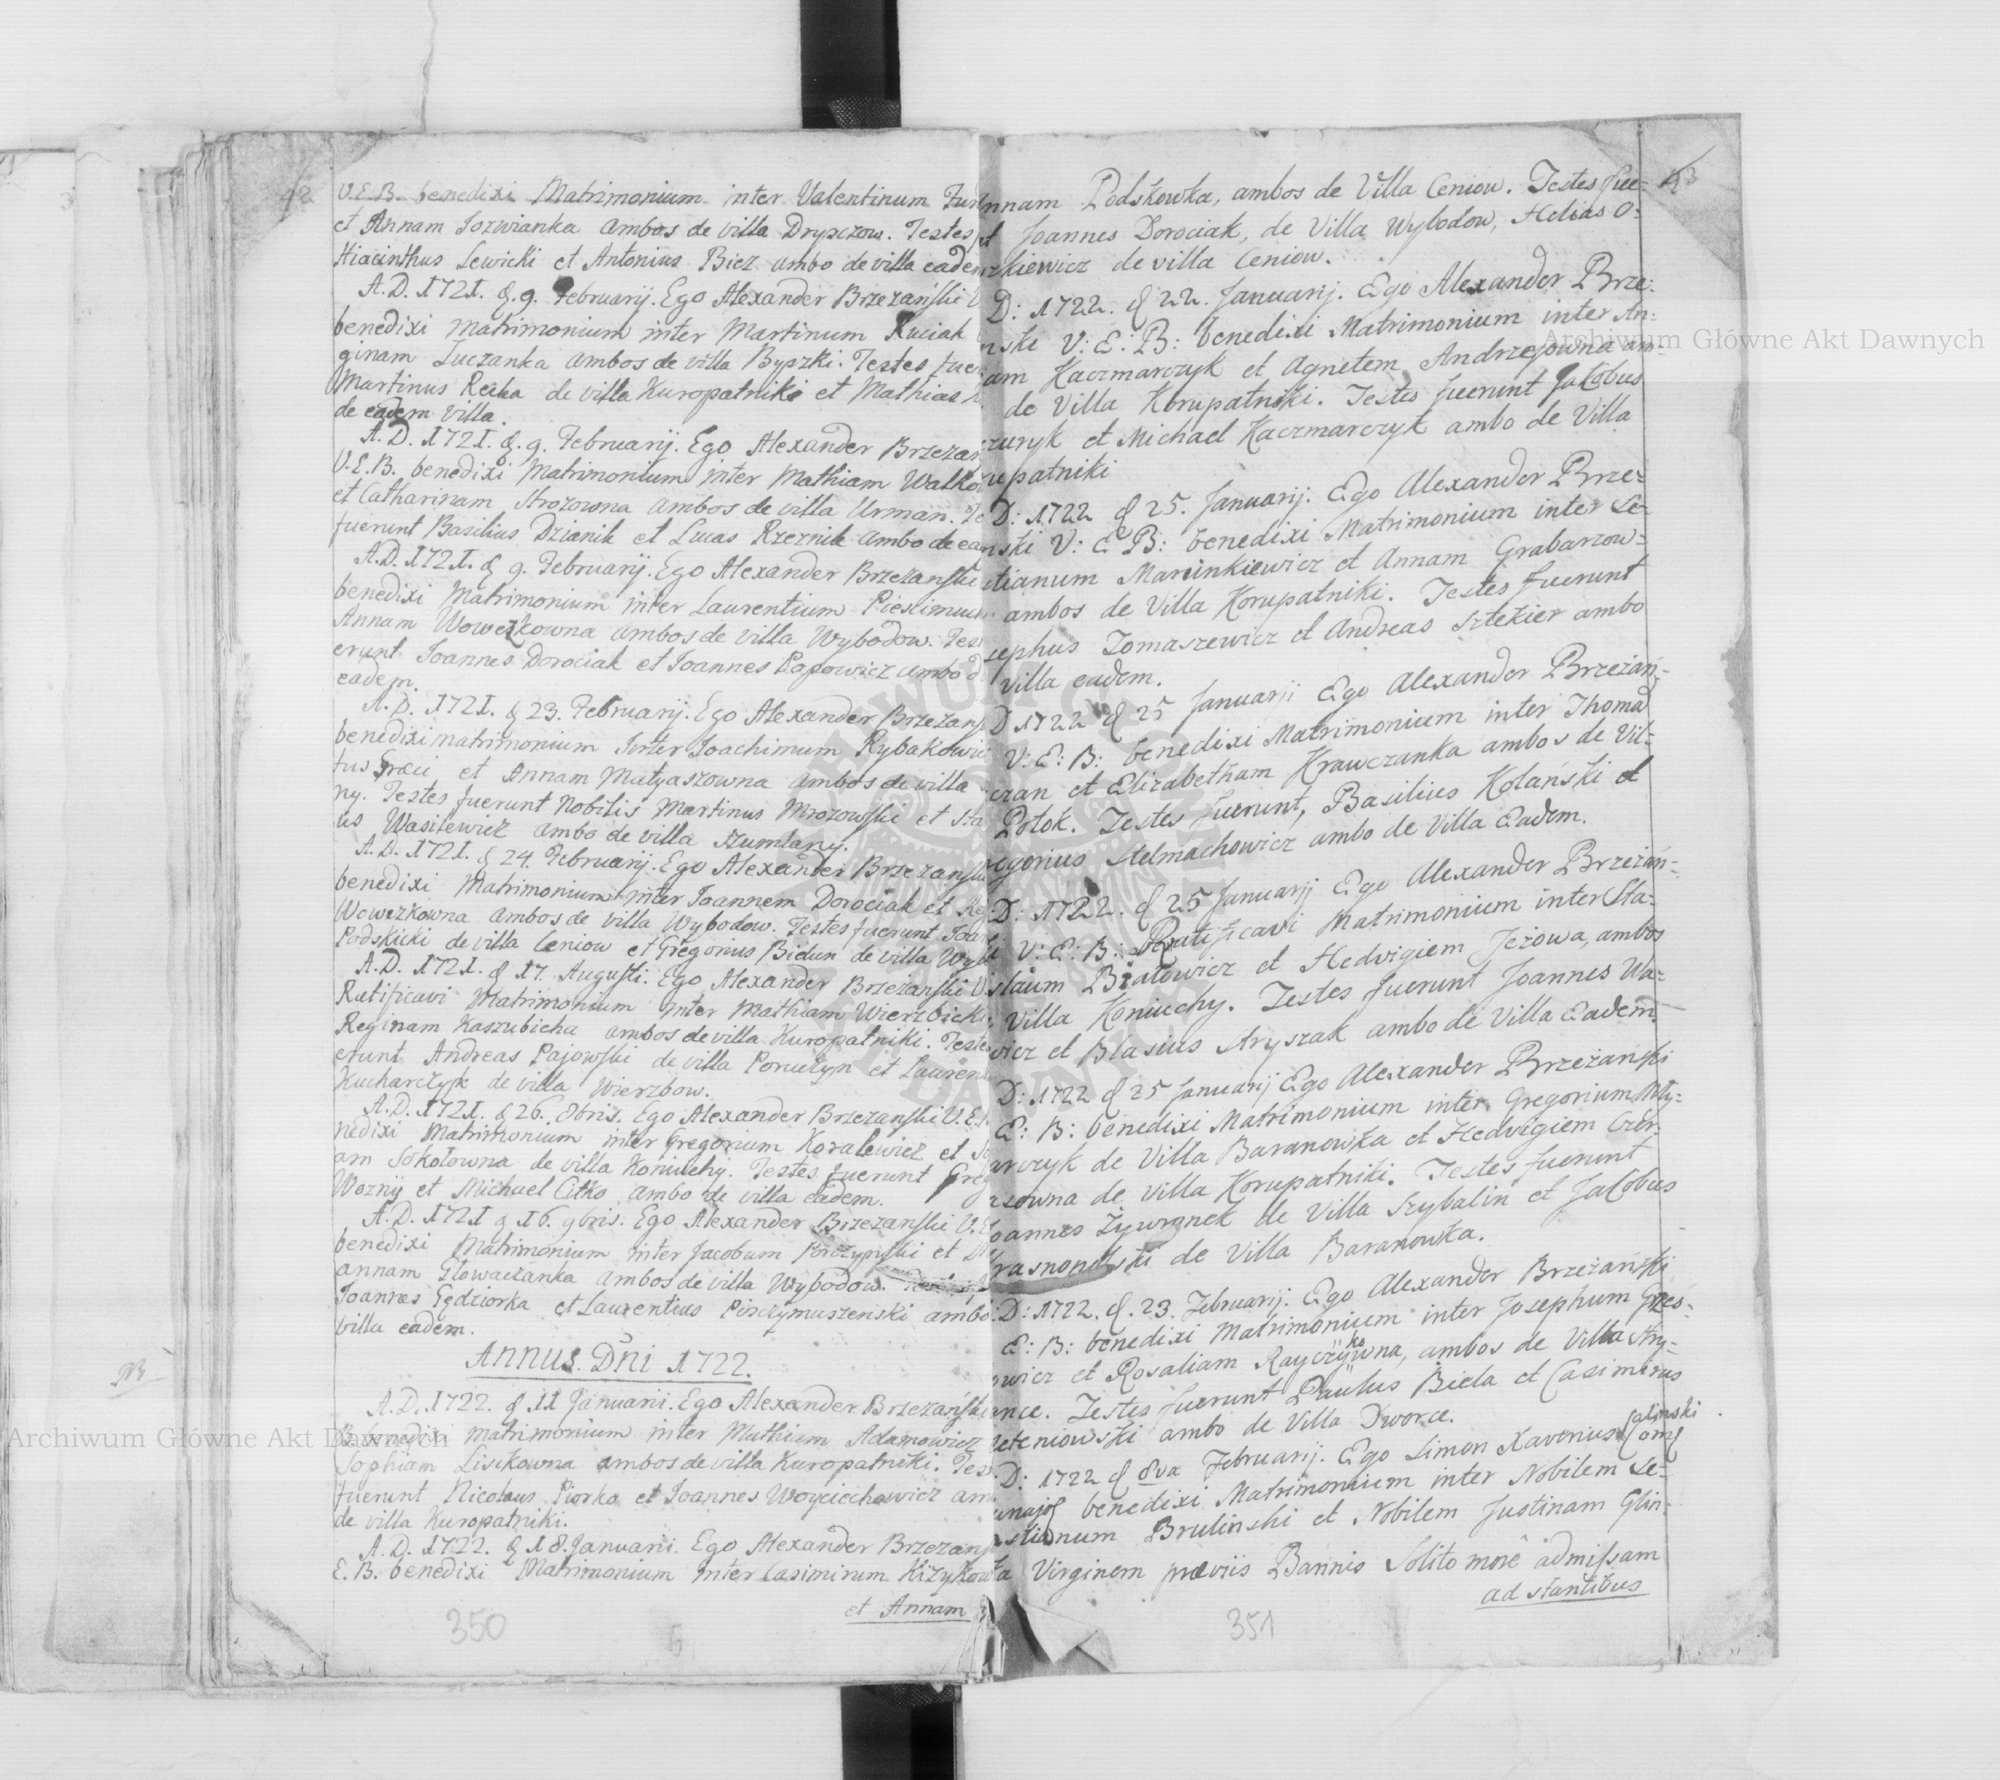 42
V.E.B. benedixi Matrimonium inter Valentinum
et Annam Jozwianka ambos de villa Drypczow. Testes
Hiacinthus Lewicki et Antonius Bicz ambo de villa eadem
A.D. 1721. d. 9. Februarij. Ego Alexander Brzezański
benedixi matrimonium inter Martinum Kuciak
ginam Luczanka ambos de villa Byszki. Testes fue
Martinus Reiha de villa Kuropatniki et Mathias
de eadem villa.
A.D. 1721. d. 9. Februarij. Ego Alexander Brzezań
V.E.B. benedixi Matrimonium inter Mathiam Walko
et Catharinam Strozowna ambos de villa Urman. Te
fuerunt Basilius Dzianik et Lucas Rzeznik ambo de ea
A.D. 1721. d 9. Februarij. Ego Alexander Brzezanski
benedixi Matrimonium inter Laurentium
Annam Woweżkowna ambos de villa Wybodow. Tes
erunt Joannes Dorociak et Joannes Popowicz ambo d
eadem.
A.D. 1721. d 23. Februarij. Ego Alexander Brzezans
benedixi matrimonium Inter Joachimum Rybakowi
tus Græci et Annam Matyaszowna ambos de villa
ny. Testes fuerunt Nobilis Martinus Mrozowski et Sta
us Wasilewicz ambo de villa Szumlany.
A.D. 1721. d 24. Februarij. Ego Alexander Brzezanski
benedixi Matrimonium inter Joannem Dorociak et Reg
Woweżkowna ambos de villa Wybodow. Testes fuerunt Joan
Podskicki de villa Ceniow et Gregorius Bidun de villa Wyb
A.D. 1721. d 17. Augusti. Ego Alexander Brzezański V
Ratificavi Matrimonium inter Mathiam Wierzbicki
Reginam Kaszubicha ambos de villa Kuropatniki. Teste
erunt Andreas Pajowski de villa Poruczyn et Lauren
Kucharczyk de villa Wierzbow.
A.D. 1721. d 26. 8bris. Ego Alexander Brzezanski V.E.
nedixi Matrimonium inter Gregorium Koralewicz et
am Sokołowna de villa Koniuchy. Testes fuerunt Greg
Wozny et Michael Citko ambo de villa eadem.
A.D. 1721 d 16. 9bris. Ego Alexander Brzezanski V.E
benedixi Matrimonium inter Jacobum et
annam Glowaczanka ambos de villa Wybodow.
Joannes Gędziorka et Laurentius Pinczymuszenski ambo
villa eadem.
Annus Dni 1722.
A.D. 1722. d 11 Januarii. Ego Alexander Brzezański
B. benedixi matrimonium inter Mathiam Adamowicz
Sophiam Lisikowna ambos de villa Kuropatniki. Tes
fuerunt Nicolaus Piorko et Joannes Woyciechowicz am
de villa Kuropatniki.
A.D. 1722. d 18. Januarii. Ego Alexander Brzezans
E.B. benedixi Matrimonium inter Casimirum Kizyk
et Annam
350
43
nnam Podskowka, ambos de Villa Ceniow. Testes fue=
Joannes Dorociak, de Villa Wybodow, Helias O=
zkiewicz de villa Ceniow.
D: 1722. d 22. Januarij. Ego Alexander Brze=
nski V: E: B: benedixi Matrimonium inter An=
am Kaczmarczyk et Agnetem Andrzejowna am=
de Villa Korupatniki. Testes fuerunt Jacobus
zuryk et Michael Kaczmarczyk ambo de Villa
rupatniki
D: 1722 d 25. Januarij. Ego Alexander Brze=
nski V: E B: benedixi Matrimonium inter Se=
stianum Marcinkiewicz et Annam Grabarzow=
ambos de Villa Korupatniki. Testes fuerunt
sephus Tomaszewicz et Andreas Sztekier ambo
villa eadem.
D 1722 d 25 Januarij Ego Alexander Brzeżań=
V: E: B: benedixi Matrimonium inter Thomā
czan et Elizabetham Krawczanka ambos de Vil=
Potok. Testes fuerunt, Basilius Kolański et
egorius Stelmachowicz ambo de Villa Eadem.
D: 1722. d 25 Januarij Ego Alexander Brzeżań=
i V: E: B: Ratificavi Matrimonium inter Sta=
slaum Białowicz et Hedvigiem Jeżowa, ambos
Villa Koniuchy. Testes fuerunt Joannes Wa=
wicz et Blasius Stryszak ambo de Villa Eadem.
D: 1722 d 25 Januarij Ego Alexander Brzeżański
E: B: benedixi Matrimonium inter Gregorium Mły=
arczyk de Villa Baranowka et Hedvigiem
szowna de Villa Korupatniki. Testes fuerunt
oannes Zywranek de Villa Szybalin et Jacobus
rasnopolski de Villa Baranowka.
D: 1722. d. 23. Februarij. Ego Alexander Brzeżański
E: B: benedixi Matrimonium inter Josephum Grzes=
owicz et Rosaliam Rayczykowna, ambos de Villa Stry=
ance. Testes fuerunt Paulus Biela et Casimirus
leteniowski ambo de Villa Dworce.
D: 1722 d 8va Februarij. Ego Simon Xaverius Calinski
benedixi Matrimonium inter Nobilem Se=
astianum Brulinski et Nobilem Justinam Glin=
Virginem præviis Bannis Solito more admissam
ad stantibus
351
Archiwum Główne Akt Dawnych
Archiwum Główne Akt Dawnych